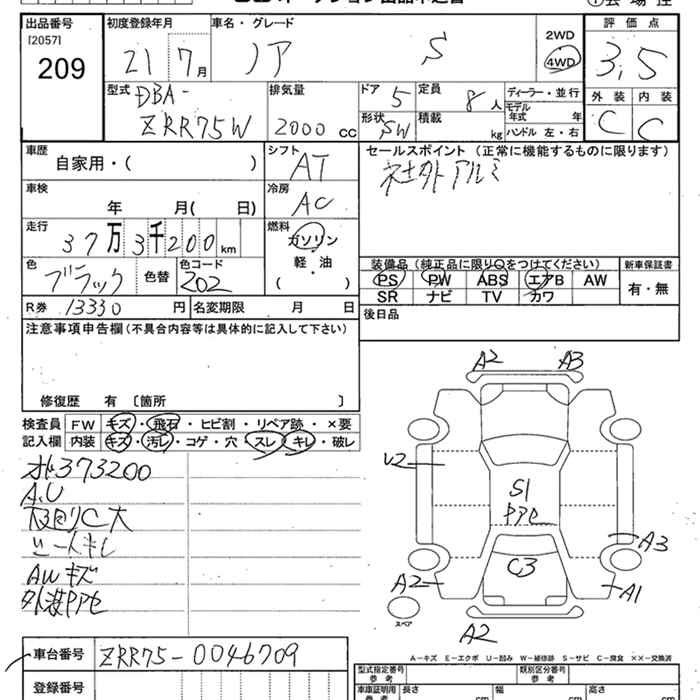 出品番号 初度登録年月 車名・グレード 2WD 評価点
[2057]
209 21 7月 ノア S 4WD 3,5
型式 DBA- 排気量 ドア 5 定員 8人 ディーラー・並行 外装 内装
ZRR75W 2000cc 形状 SW 積載 kg モデル年式 年 C C
ハンドル 左・右
車歴 自家用・( ) シフト AT セールスポイント (正常に機能するものに限ります)
社外アルミ
車検 年 月( 日) 冷房 AC
走行 37万3千200km 燃料 ガソリン
軽・油
( )
色 ブラック 色替 色コード 202
装備品 (純正品に限り○をつけてください) 新車保証書
PS PW ABS エアB AW 有・無
SR ナビ TV カワ
R券 13330円 名変期限 月 日
後日品
注意事項申告欄 (不具合内容等は具体的に記入して下さい)
修復歴 有 〔箇所 〕
検査員 FW キズ・飛石・ヒビ割・リペア跡・×要
記入欄 内装 キズ・汚レ・コゲ・穴・スレ・キレ・破レ
373200
A.U
下回りC大
シートキレ
AWキズ
外装PPセ
A2 A3
U2
S1
PPセ
A3
C3
A2 A1
スペア
A2
A-キズ E-エクボ U-凹み W-補修跡 S-サビ C-腐食 ××-交換済
車台番号 ZRR75-0046709
型式指定番号 参考 類別区分番号 参考
登録番号
車庫証明用 参考 長さ cm 幅 cm 高さ cm